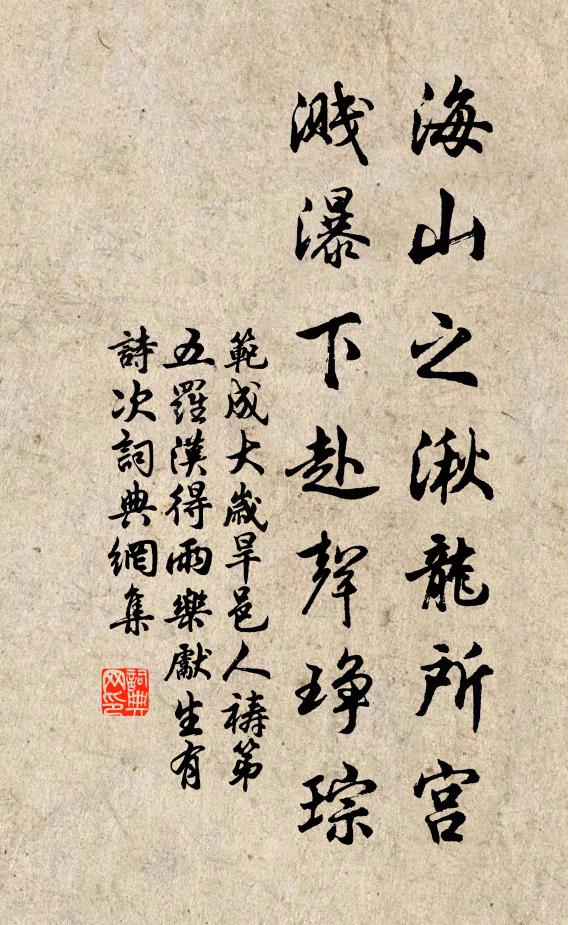 海山之湫龍所宮
濺瀑下赴聲琤琮
範成大歲旱邑人禱第
五羅漢得雨樂獻生有
詩次詞典網集
詞典網印